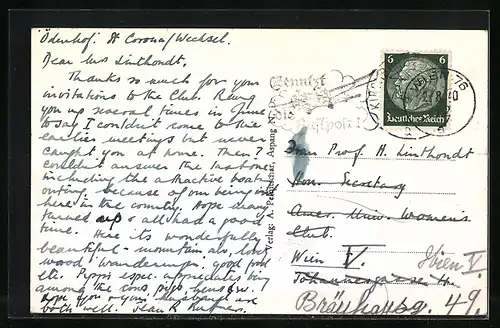 Ödenhof. St Corona/Wechsel.
Dear Mrs Linthondt.
Thanks so much for your
invitations to the Club. Rang
you up several times in June
to say I couldn't come to the
earlier meetings but never
caught you at home. Then I
couldn't answer the last one
including the attractive boat
outing, because of our being
here in the country. Hope many
turned up & all had a good
time. Here its wonderfully
beautiful - mountain air,
wood wanderings, good food
etc. espec. appreciates being
among the cows pigs, hens &c. I
hope you & your husband are
both well.
Verlag: A. Aspang
Benützt
die
Luftpost!
6 6
Deutsches Reich
40
Frau Prof H. Linthondt
Hon. Secretary
Amer. Univ. Women's
Club.
Wien V.
Wien V.
Bräuhausg. 49.